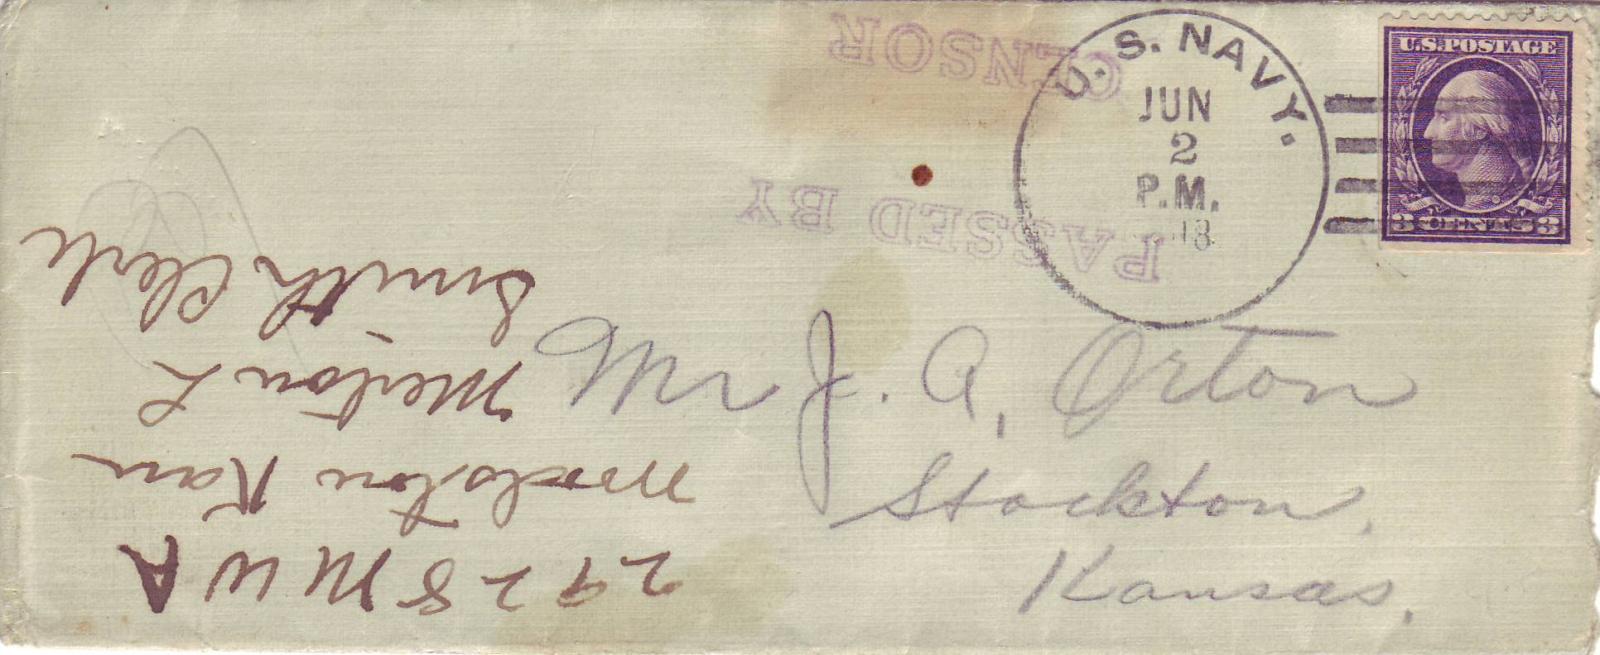 U.S. NAVY.
JUN
2
P.M.
18
U.S. POSTAGE
3 CENTS 3
PASSED BY
CENSOR
Mr J. A. Orton
Stockton,
Kansas.
2928 M W A
Woodston Kan
Merton L
Smith Clerk